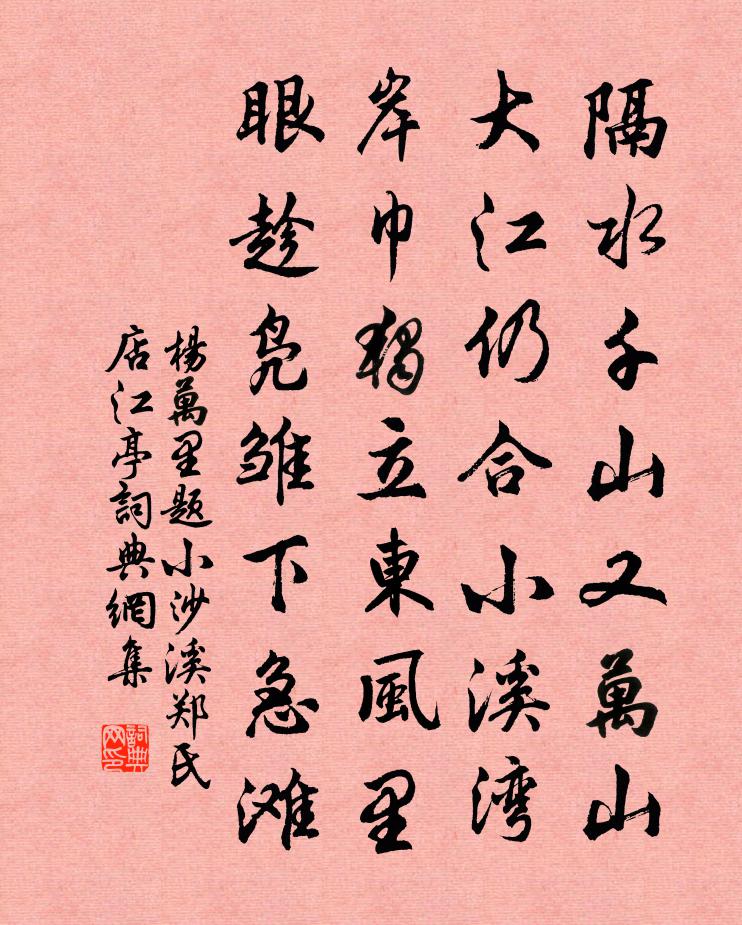 隔水千山又萬山
大江仍合小溪湾
岸巾獨立東風里
眼趁凫雏下急滩
楊萬里题小沙溪郑氏
店江亭詞典網集
詞典网印